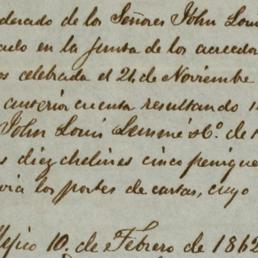 derado de los Señores John Loui
ado en la Junta de los acreedor
os celebrada el 24 de Noviembre
anterior cuenta resultando
John Louis Lemmé &Cº. de
s diez chelines cinco penique
via los portes de cartas, cuyo
Mejico 10. de Febrero de 1862